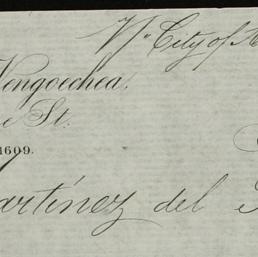 Vᵃ City of
Vengoechea.
St.
1609.
artínez del